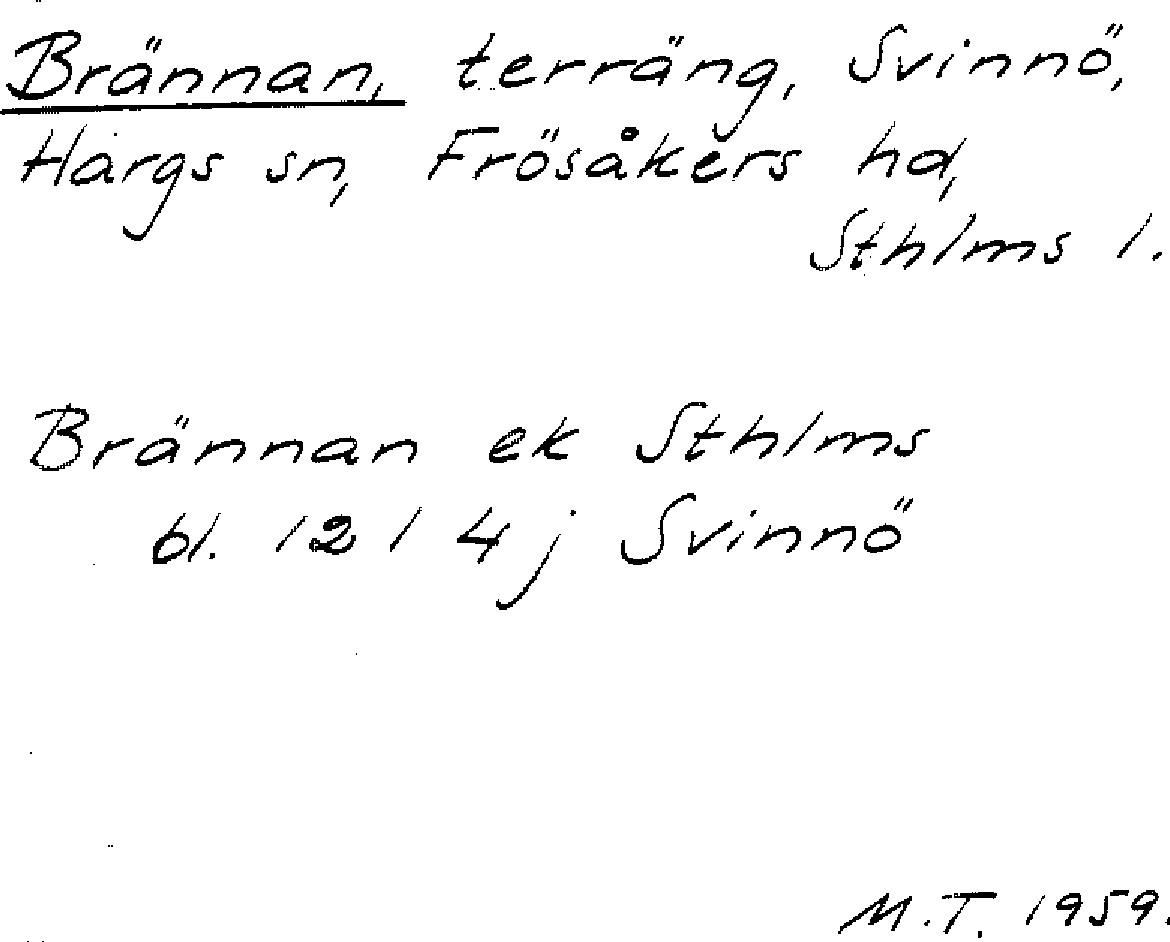 Brännan, terräng, Svinnö,
Hargs sn, Frösåkers hd,
Sthlms l.
Brännan ek Sthlms
bl. 12 1 4 j Svinnö
M.T. 1959.